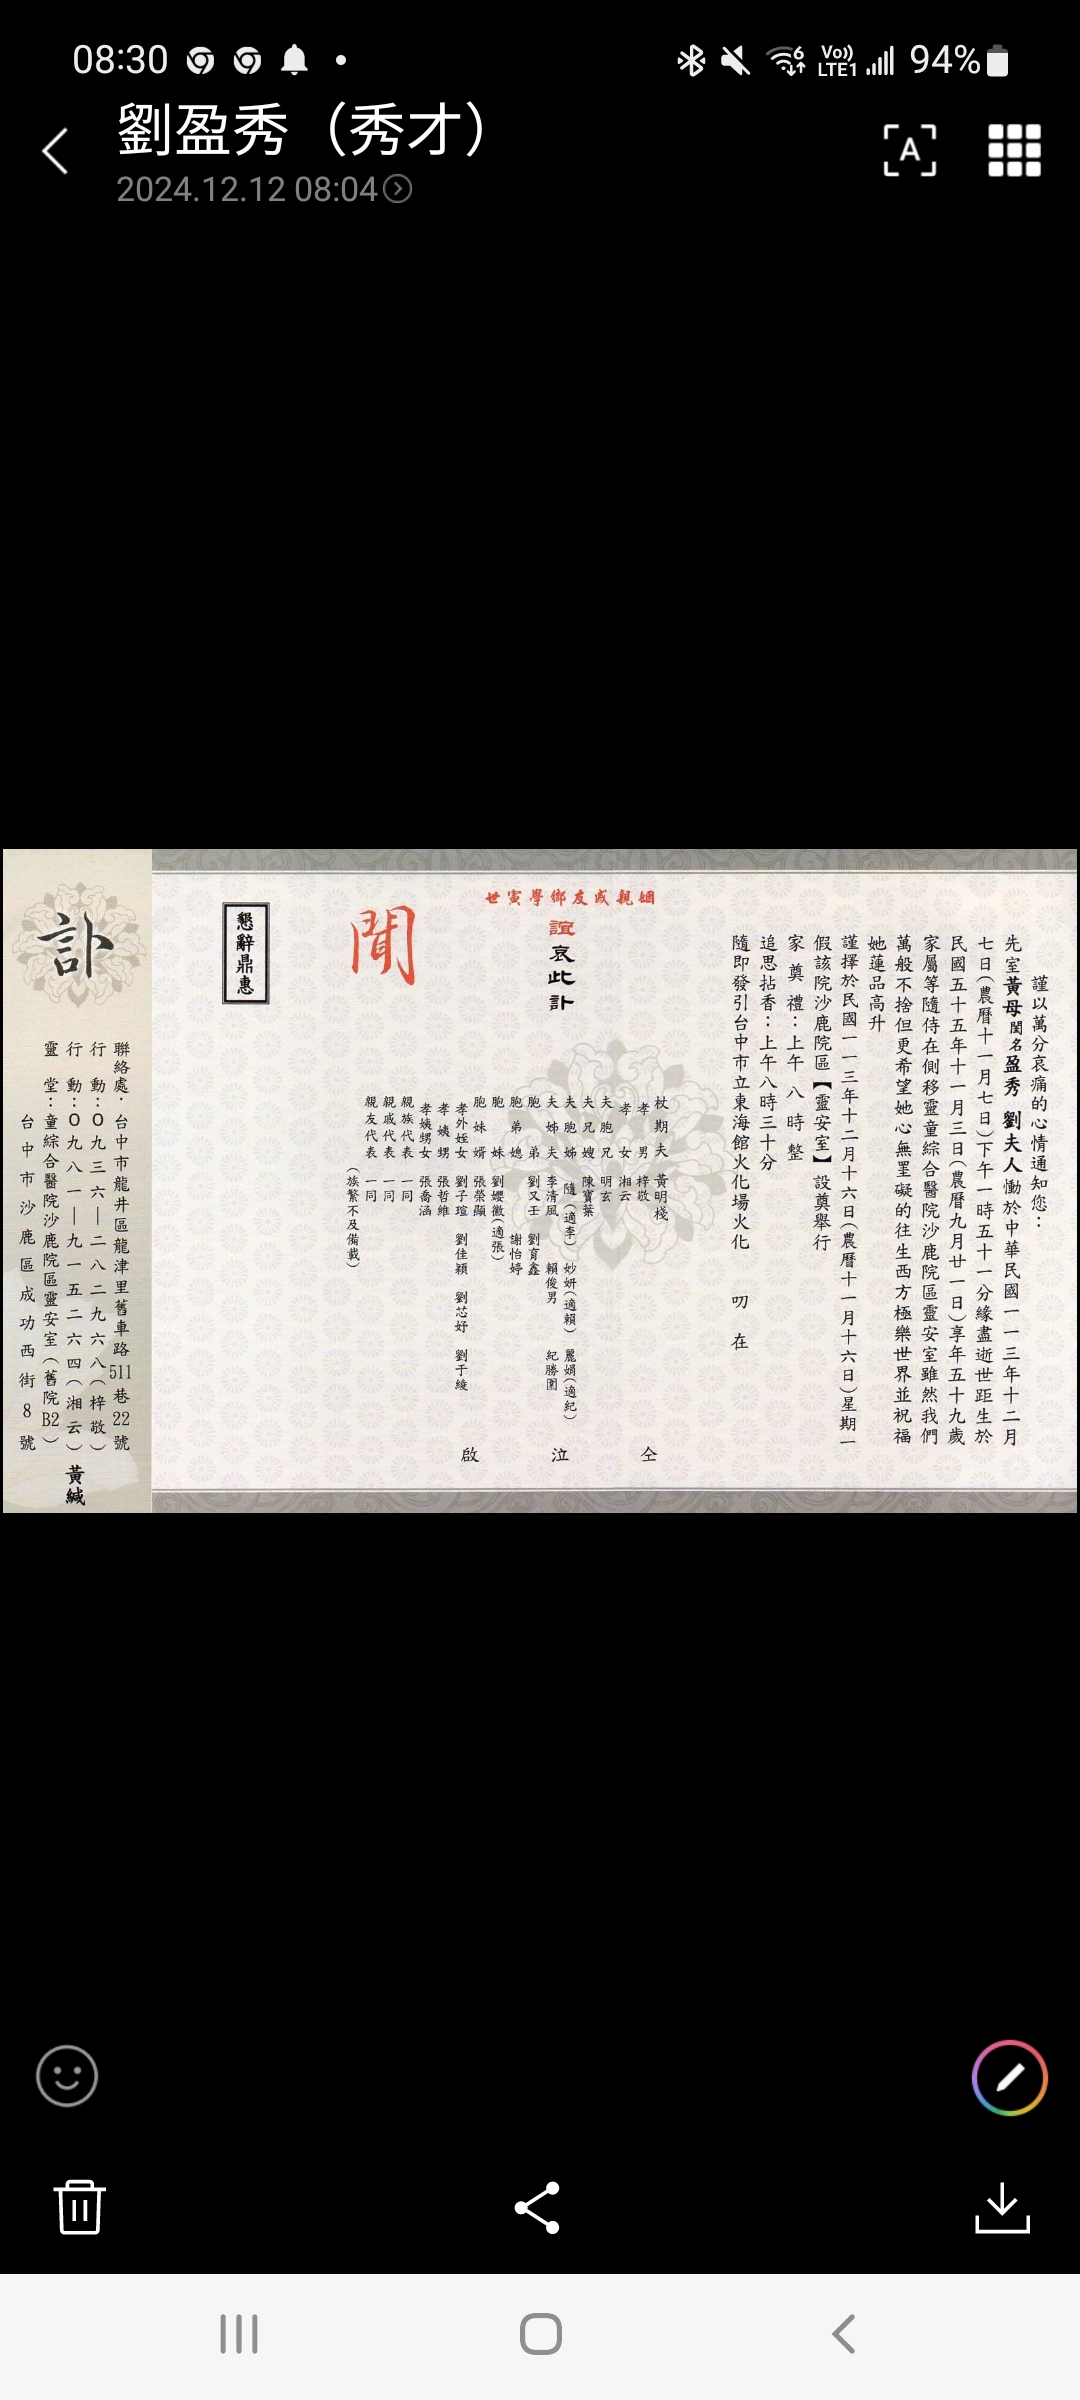 08:30
Vo)) LTE1
94%
劉盈秀（秀才）
2024.12.12 08:04
A
謹以萬分哀痛的心情通知您：
先室黃母閨名盈秀 劉夫人慟於中華民國一一三年十二月
七日(農曆十一月七日)下午一時五十一分緣盡逝世距生於
民國五十五年十一月三日(農曆九月廿一日)享年五十九歲
家屬等隨侍在側移靈童綜合醫院沙鹿院區靈安室雖然我們
萬般不捨但更希望她心無罣礙的往生西方極樂世界並祝福
她蓮品高升
謹擇於民國一一三年十二月十六日(農曆十一月十六日)星期一
假該院沙鹿院區【靈安室】設奠舉行
家奠禮：上午八時整
追思拈香：上午八時三十分
隨即發引台中市立東海館火化場火化 叨在
姻親戚友鄉學寅世
誼哀此訃
聞
杖期夫 黃明棧
孝男 梓敬
孝女 湘云
夫胞兄 明玄
夫兄嫂 陳寶葉
夫胞姊 隨(適李) 妙妍(適賴) 麗娟(適紀)
夫姊夫 李清風 賴俊男 紀勝圍
胞弟 劉又壬 劉育鑫
胞弟媳 謝怡婷
胞妹 劉嬡徽(適張)
胞妹婿 張榮顯
孝外姪女 劉子瑄 劉佳穎 劉芯妤 劉于綾
孝姨甥 張哲維
孝姨甥女 張喬涵
親族代表 一同
親戚代表 一同
親友代表 一同
(族繁不及備載)
仝
泣
啟
懇辭鼎惠
訃
聯絡處：台中市龍井區龍津里舊車路511巷22號
行動：0九三六—二八二九六八(梓敬)
行動：0九八一—九一五二六四(湘云)
靈堂：童綜合醫院沙鹿院區靈安室(舊院B2)
台中市沙鹿區成功西街8號
黃緘